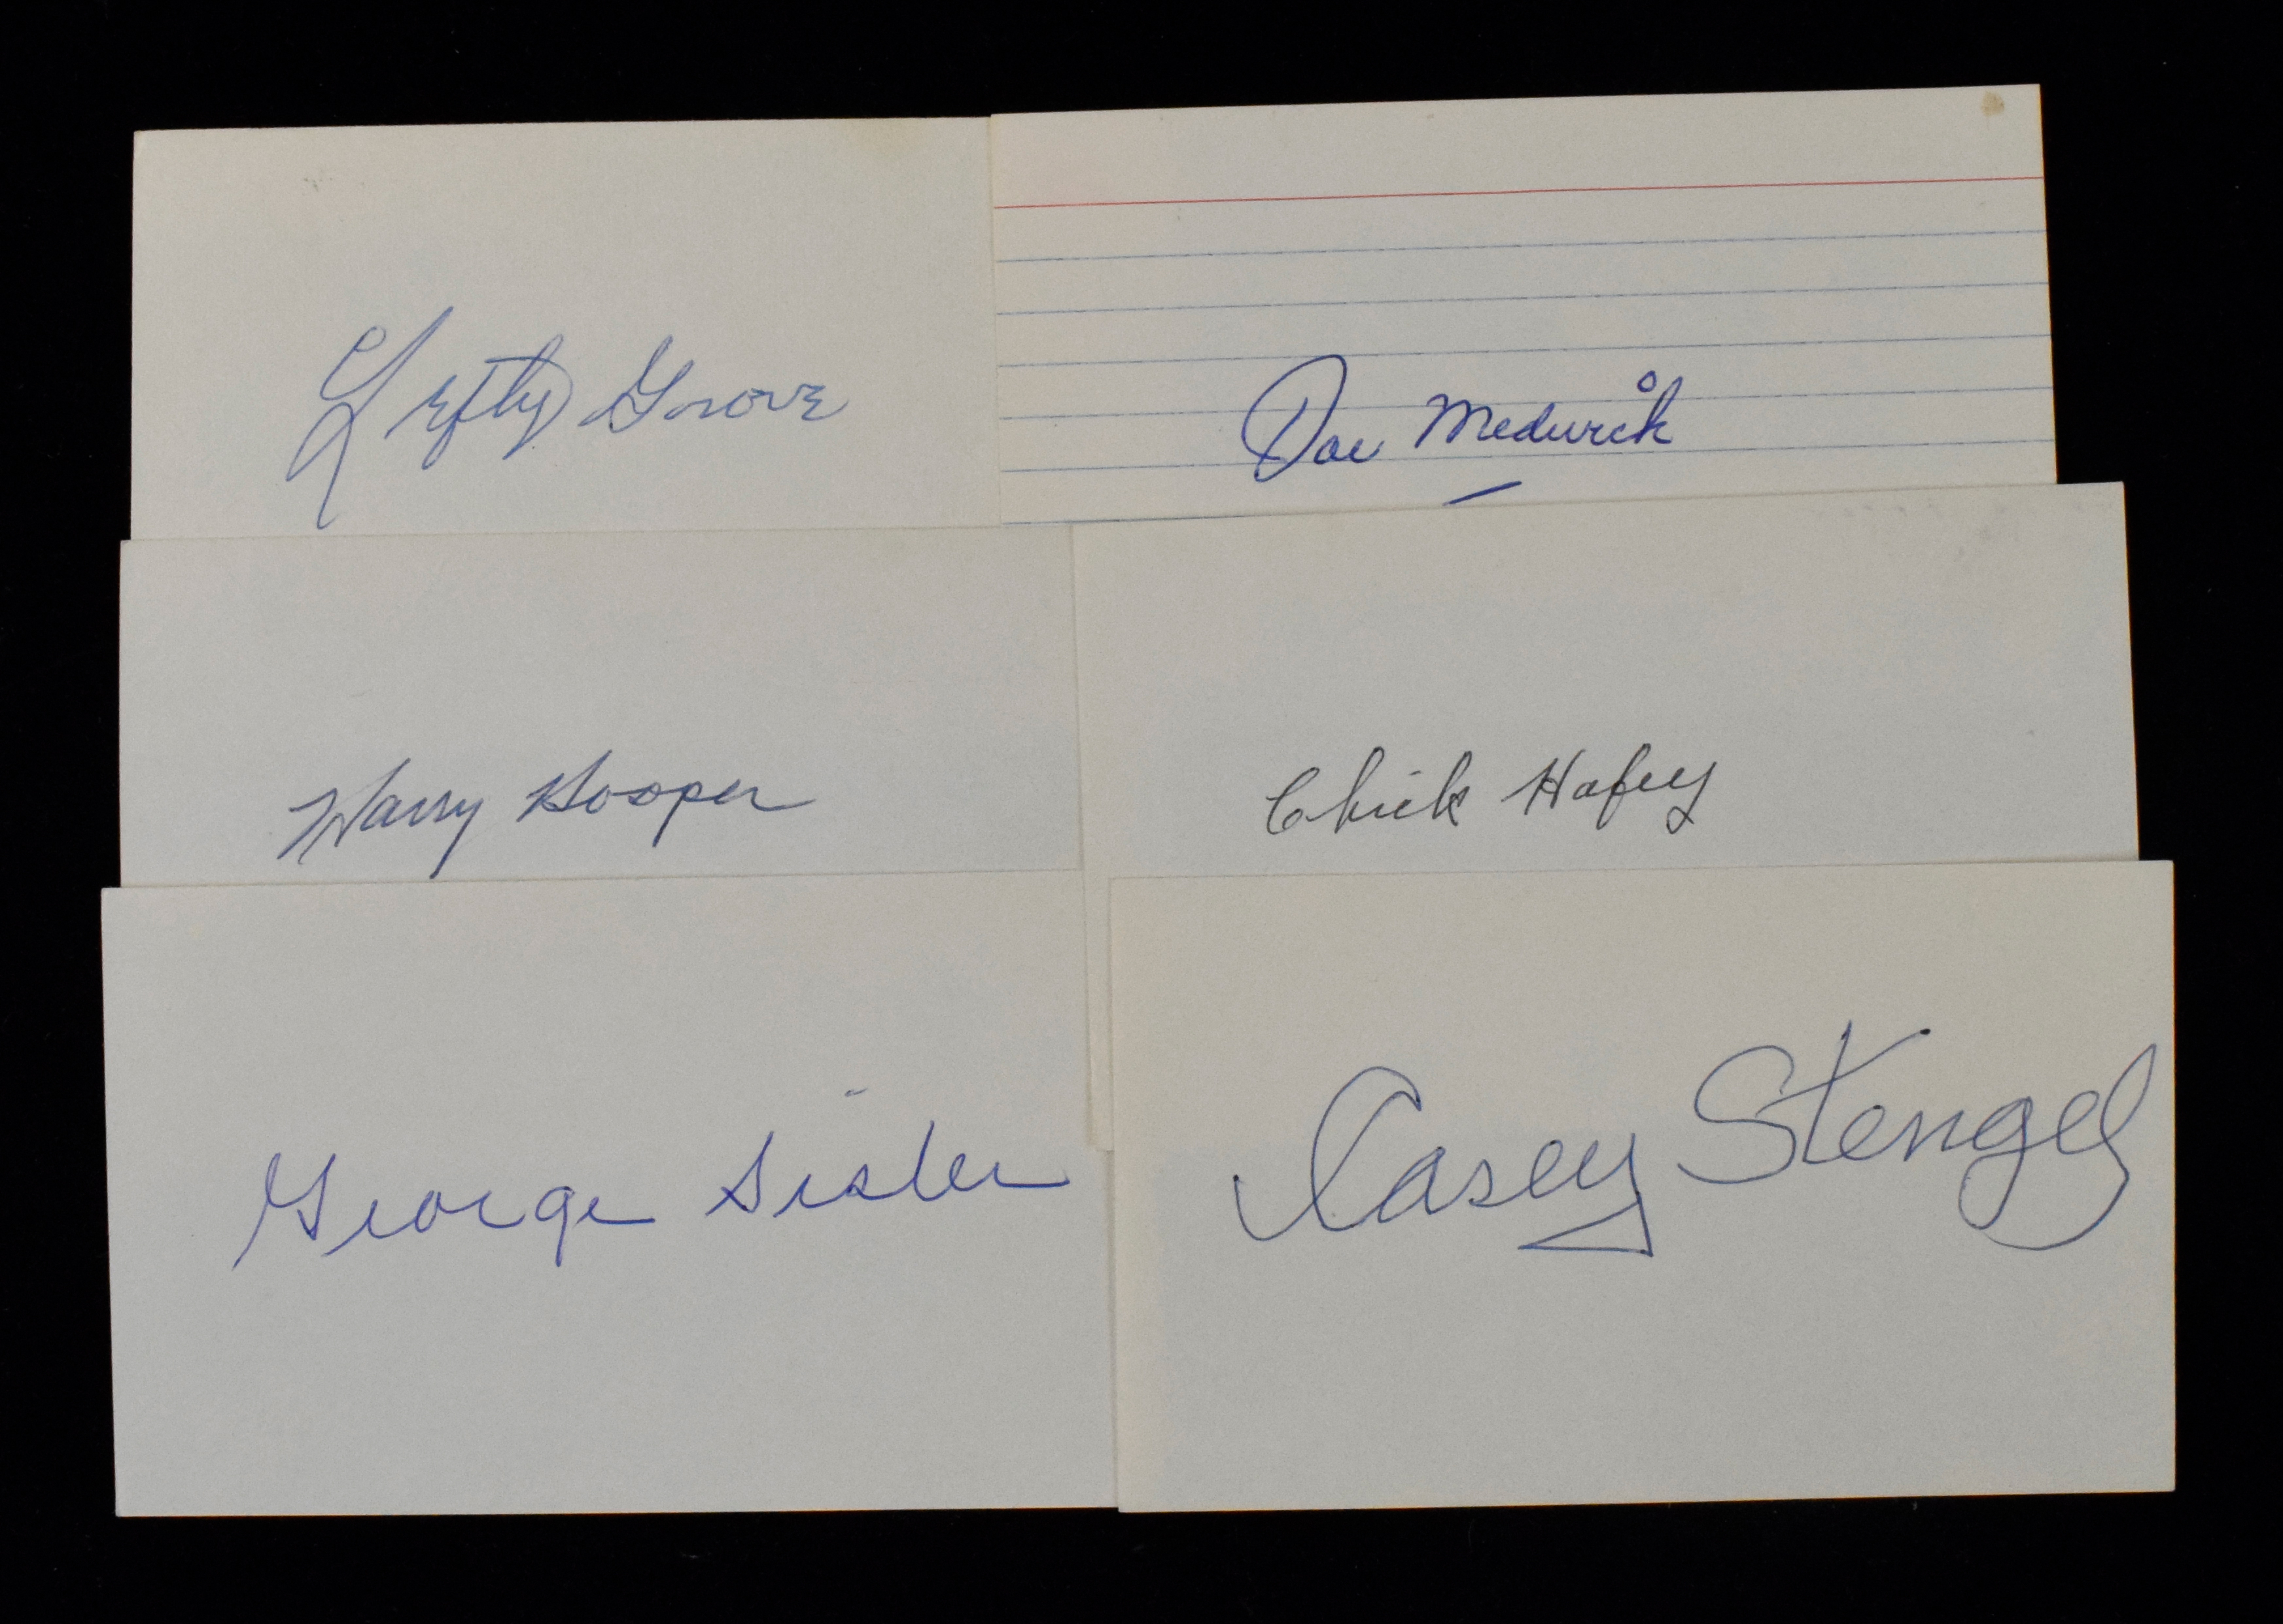 Lefty Grove
Joe Medwick
Harry Hooper
Chick Hafey
George Sisler
Casey Stengel